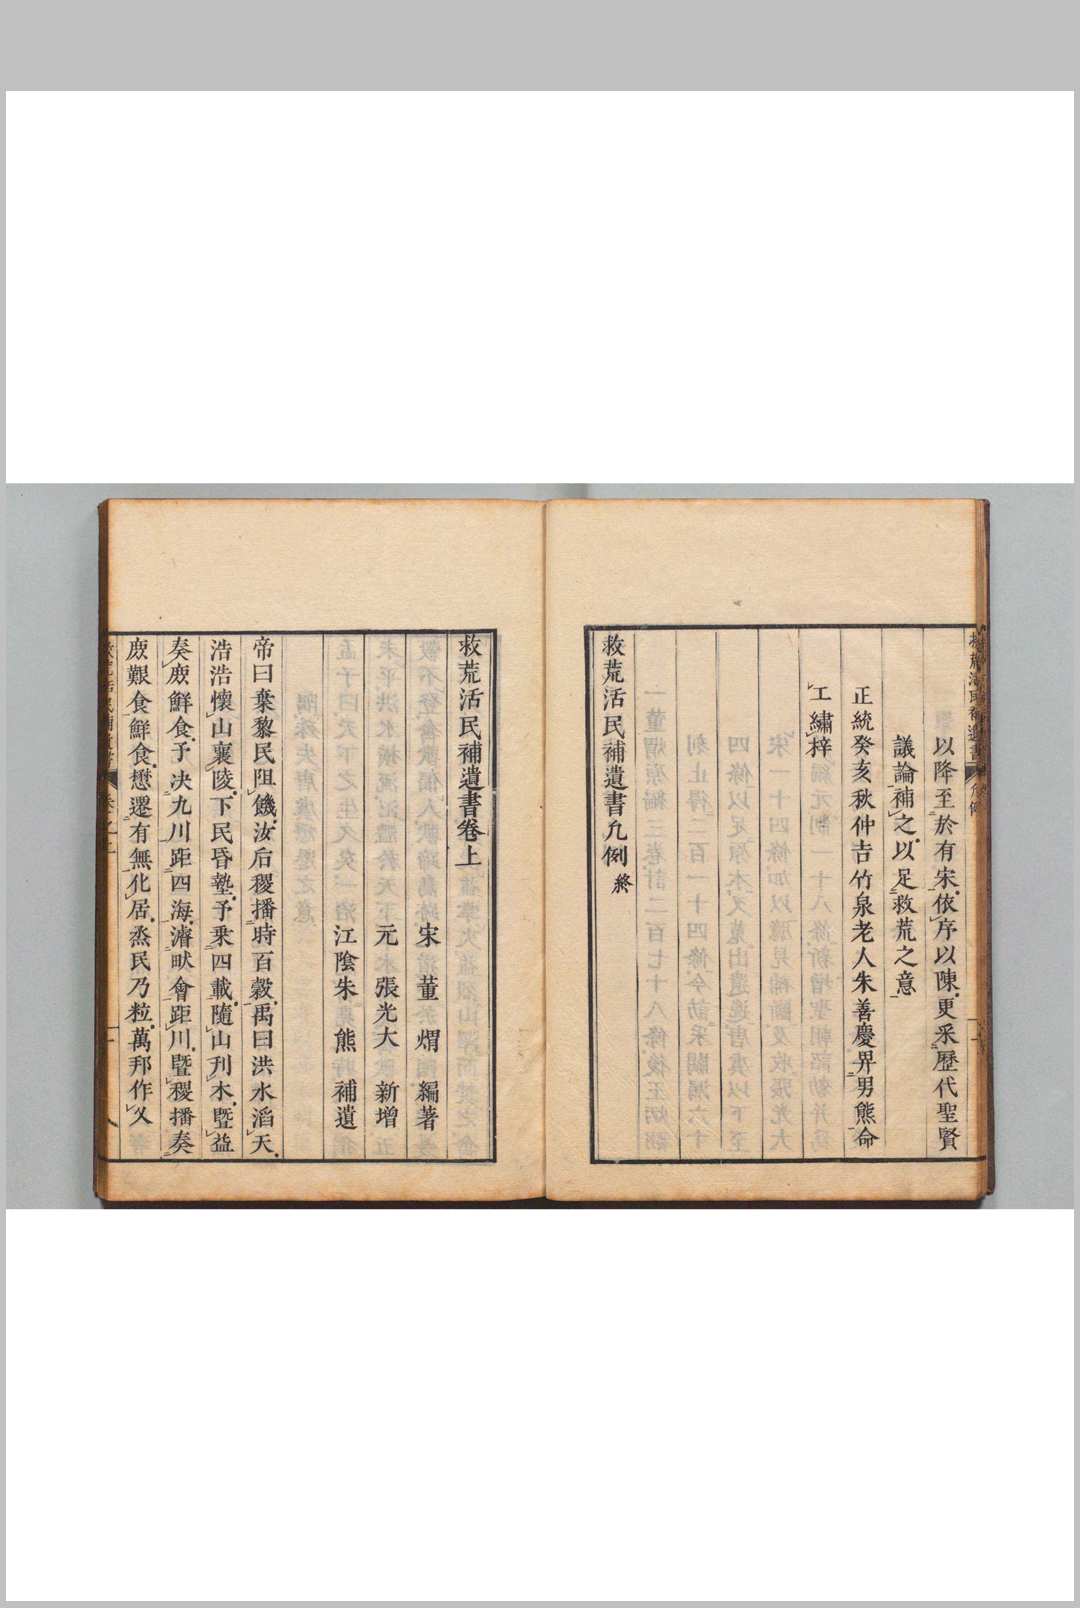 以降至於有宋依序以陳更采歷代聖賢
議論補之以足救荒之意
正統癸亥秋仲吉竹泉老人朱善慶畀男熊命
工繡梓
救荒活民補遺書凡例終
救荒活民補遺書卷上
宋 董 煟 編著
元 張光大 新增
江陰朱 熊 補遺
帝曰棄黎民阻饑汝后稷播時百穀禹曰洪水滔天
浩浩懷山襄陵下民昏墊予乘四載隨山刊木暨益
奏庶鮮食予決九川距四海濬畎會距川暨稷播奏
庶艱食鮮食懋遷有無化居烝民乃粒萬邦作乂